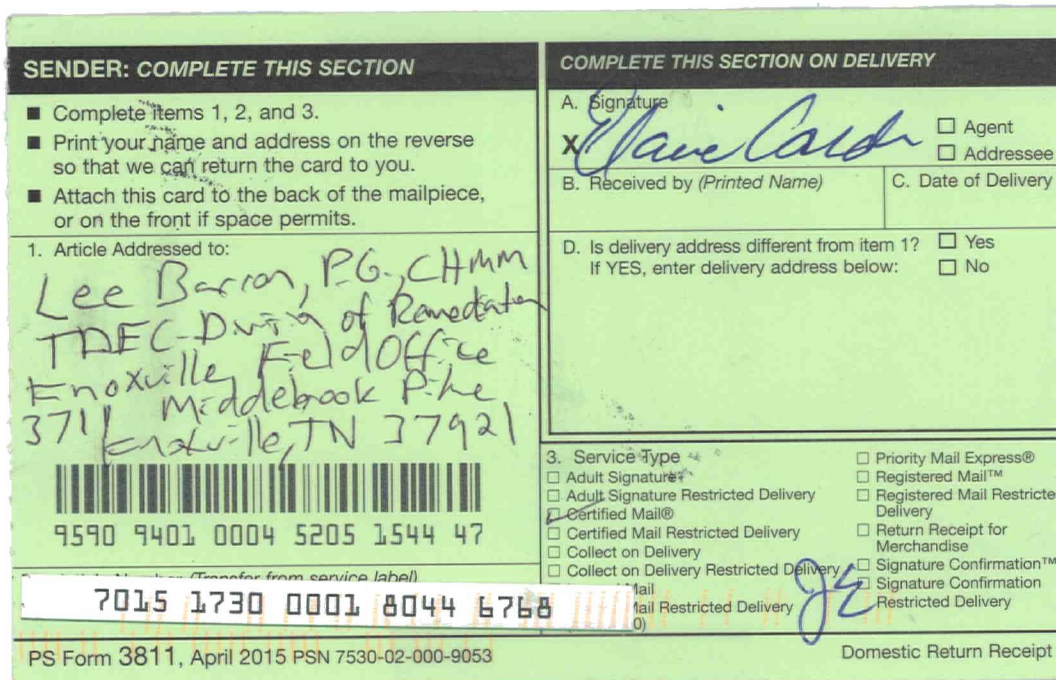 SENDER: COMPLETE THIS SECTION
■ Complete items 1, 2, and 3.
■ Print your name and address on the reverse
so that we can return the card to you.
■ Attach this card to the back of the mailpiece,
or on the front if space permits.
1. Article Addressed to:
Lee Barron, P.G., CHMM
TDEC-Division of Remediation
Knoxville Field Office
3711 Middlebrook Pike
Knoxville, TN 37921
9590 9401 0004 5205 1544 47
(Transfer from service label)
7015 1730 0001 8044 6768
PS Form 3811, April 2015 PSN 7530-02-000-9053
COMPLETE THIS SECTION ON DELIVERY
A. Signature
X Elaine
☐ Agent
☐ Addressee
B. Received by (Printed Name)
C. Date of Delivery
D. Is delivery address different from item 1? ☐ Yes
If YES, enter delivery address below: ☐ No
3. Service Type
☐ Adult Signature
☐ Adult Signature Restricted Delivery
☑ Certified Mail®
☐ Certified Mail Restricted Delivery
☐ Collect on Delivery
☐ Collect on Delivery Restricted Delivery
Mail
Mail Restricted Delivery
0)
☐ Priority Mail Express®
☐ Registered Mail™
☐ Registered Mail Restricte
Delivery
☐ Return Receipt for
Merchandise
☐ Signature Confirmation™
☐ Signature Confirmation
Restricted Delivery
Domestic Return Receipt